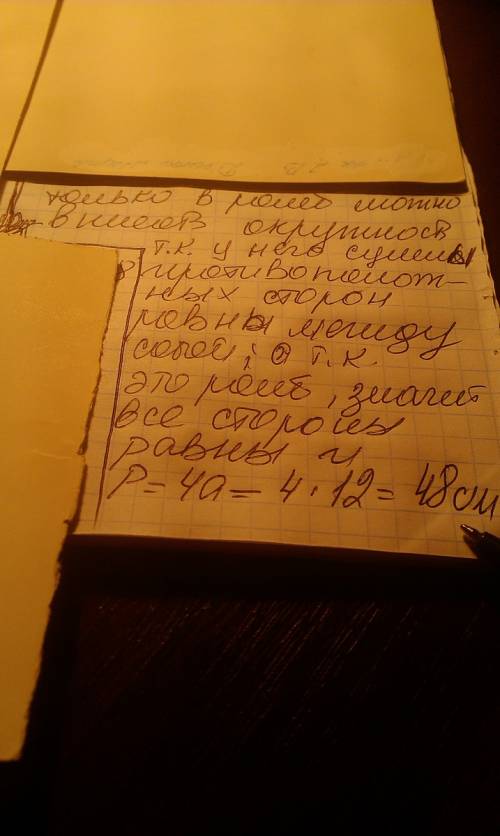 только в ромб можно
вписать окружность
т.к. у него суммы
противополож-
ных сторон
равны между
собой; т.к.
это ромб, значит
все стороны
равны и
P = 4a = 4 · 12 = 48 см